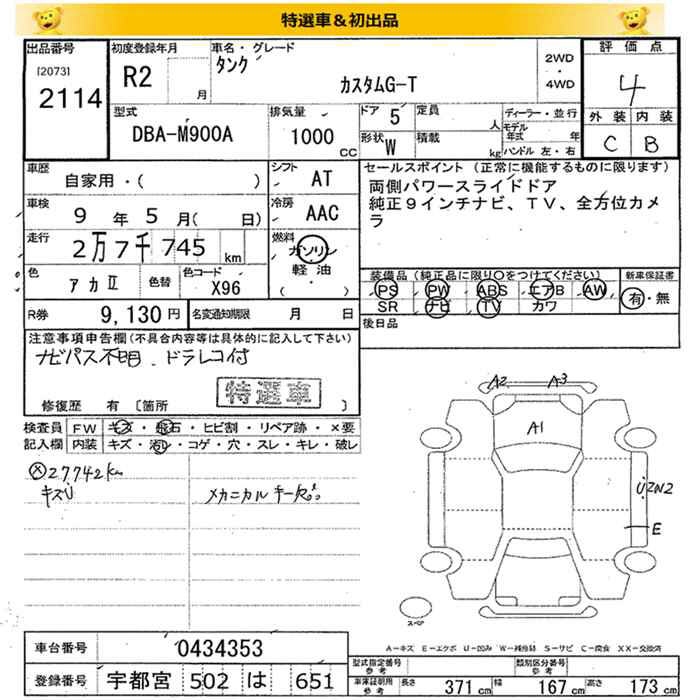 特選車＆初出品
出品番号 初度登録年月 車名・グレード 評価点
[2073] 2114
R2 月
タンク カスタムG-T
2WD ・ 4WD
4
型式 排気量 ドア 定員 ディーラー・並行 外装 内装
DBA-M900A 1000 CC 5 人 モデル年式 年
形状 W 積載 kg ハンドル 左・右 C B
車歴 シフト セールスポイント (正常に機能するものに限ります)
自家用・( ) AT
両側パワースライドドア
純正9インチナビ、TV、全方位カメ
ラ
車検 9 年 5 月 ( 日) 冷房 AAC
走行 2万7千745 km 燃料 ガソリン
軽油
・( )
色 アカⅡ 色替 色コード X96
装備品 (純正品に限り○をつけてください) 新車保証書
PS PW ABS エアB AW
SR ナビ TV カワ
有・無
R券 9,130 円 名変通知期限 月 日
後日品
注意事項申告欄 (不具合内容等は具体的に記入して下さい)
ナビパス不明．ドラレコ付
特選車
修復歴 有 〔箇所 〕
検査員 FW キズ・飛石・ヒビ割・リペア跡・×要
記入欄 内装 キズ・汚レ・コゲ・穴・スレ・キレ・破レ
27742km
キズU
メカニカルキー欠
A2 A3
A1
U2W2
E
スペア
A-キズ E-エクボ U-凹み W-補修跡 S-サビ C-腐食 XX-交換済
車台番号 0434353
登録番号 宇都宮 502 は 651
型式指定番号 参考 類別区分番号 参考
車庫証明用 参考 長さ 371 cm 幅 167 cm 高さ 173 cm